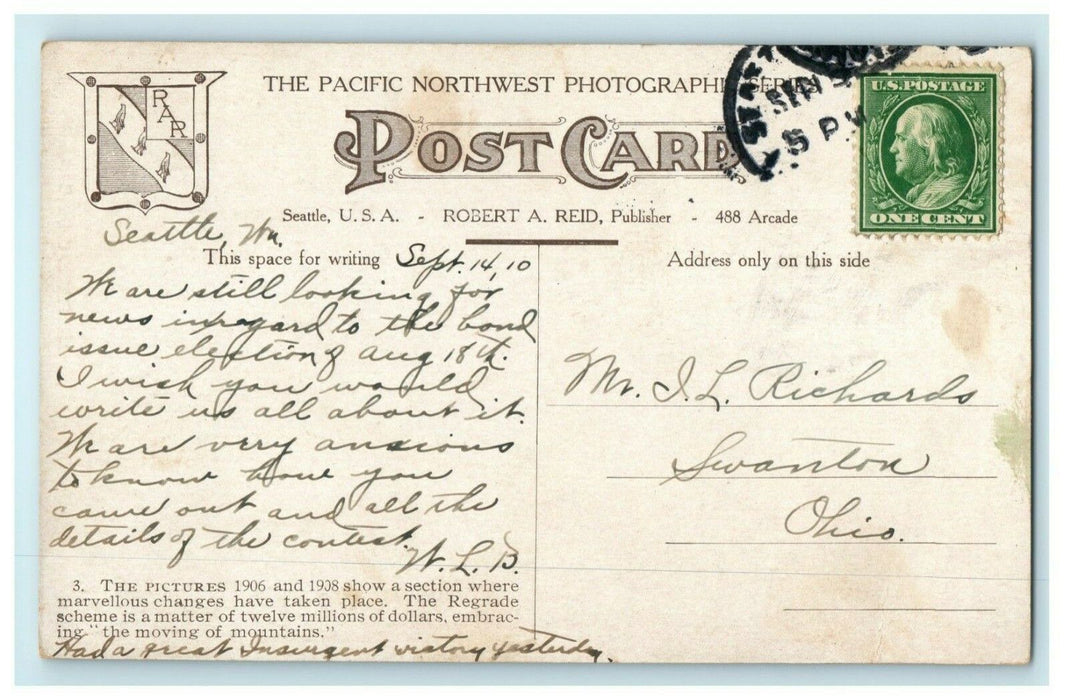 THE PACIFIC NORTHWEST PHOTOGRAPHIC SERIES
RAR
POST CARD
SEATTLE
SEP
5 PM
U.S. POSTAGE
ONE CENT
Seattle, U. S. A. - ROBERT A. REID, Publisher - 488 Arcade
Seattle, Wn.
This space for writing Sept. 14, 10
Address only on this side
We are still looking for
news in regard to the bond
issue election of Aug 18th.
I wish you would
write us all about it.
We are very anxious
to know how you
came out and all the
details of the contest.
W. L. B.
Mr. I. L. Richards
Swanton
Ohio.
3. THE PICTURES 1906 and 1908 show a section where
marvellous changes have taken place. The Regrade
scheme is a matter of twelve millions of dollars, embrac-
ing "the moving of mountains."
Had a great Insurgent victory yesterday.